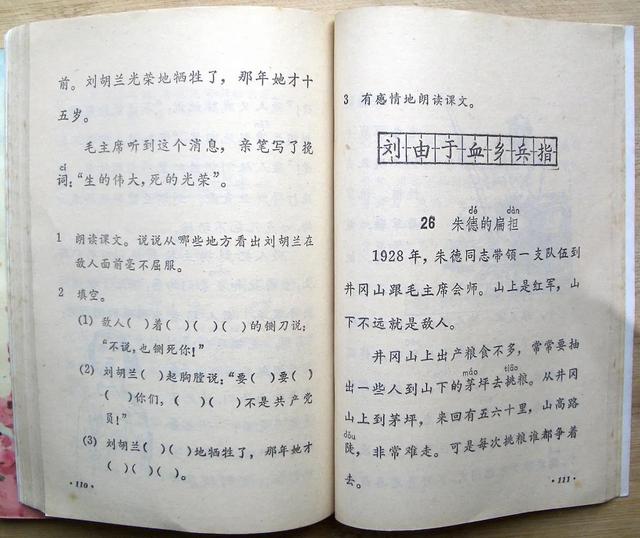 前。刘胡兰光荣地牺牲了，那年她才十
五岁。
毛主席听到这个消息，亲笔写了挽
cí
词：“生的伟大，死的光荣”。
1 朗读课文。说说从哪些地方看出刘胡兰在
敌人面前毫不屈服。
2 填空。
(1) 敌人( )着( )( )( )的铡刀说：
“不说，也铡死你！”
(2) 刘胡兰( )起胸膛说：“要( )要( )
( )你们，( )( )不是共产党
员！”
(3) 刘胡兰( )( )地牺牲了，那年她才
( )( )( )。
·110·
3 有感情地朗读课文。
刘由于血乡兵指
dé dàn
26 朱德的扁担
1928年，朱德同志带领一支队伍到
井冈山跟毛主席会师。山上是红军，山
下不远就是敌人。
井冈山上出产粮食不多，常常要抽
máo tiāo
出一些人到山下的茅坪去挑粮。从井冈
山上到茅坪，来回有五六十里，山高路
dǒu
陡，非常难走。可是每次挑粮谁都争着
去。
·111·